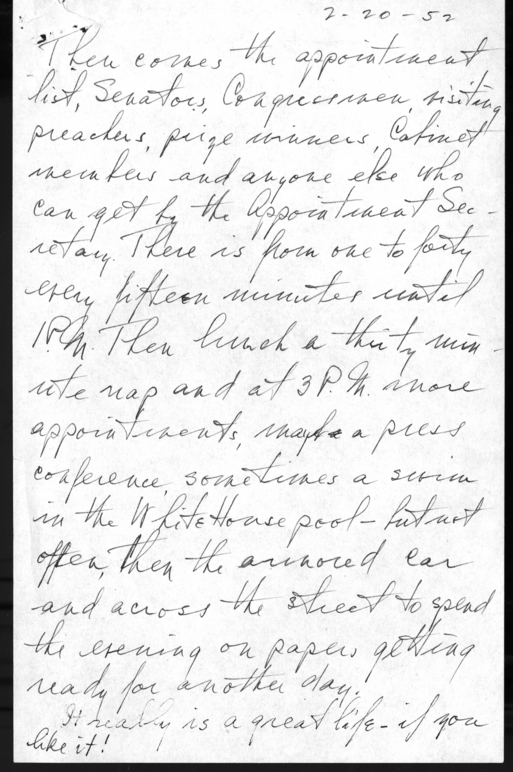 2-20-52
Then comes the appointment
list, Senators, Congressmen, visiting
preachers, prize winners, Cabinet
members and anyone else who
can get by the Appointment Sec-
retary. There is from one to forty
every fifteen minutes until
1 P.M. Then lunch a thirty min-
ute nap and at 3 P.M. more
appointments, maybe a press
conference, sometimes a swim
in the White House pool - but not
often, then the armored car
and across the street to spend
the evening on papers getting
ready for another day.
It really is a great life - if you
like it!